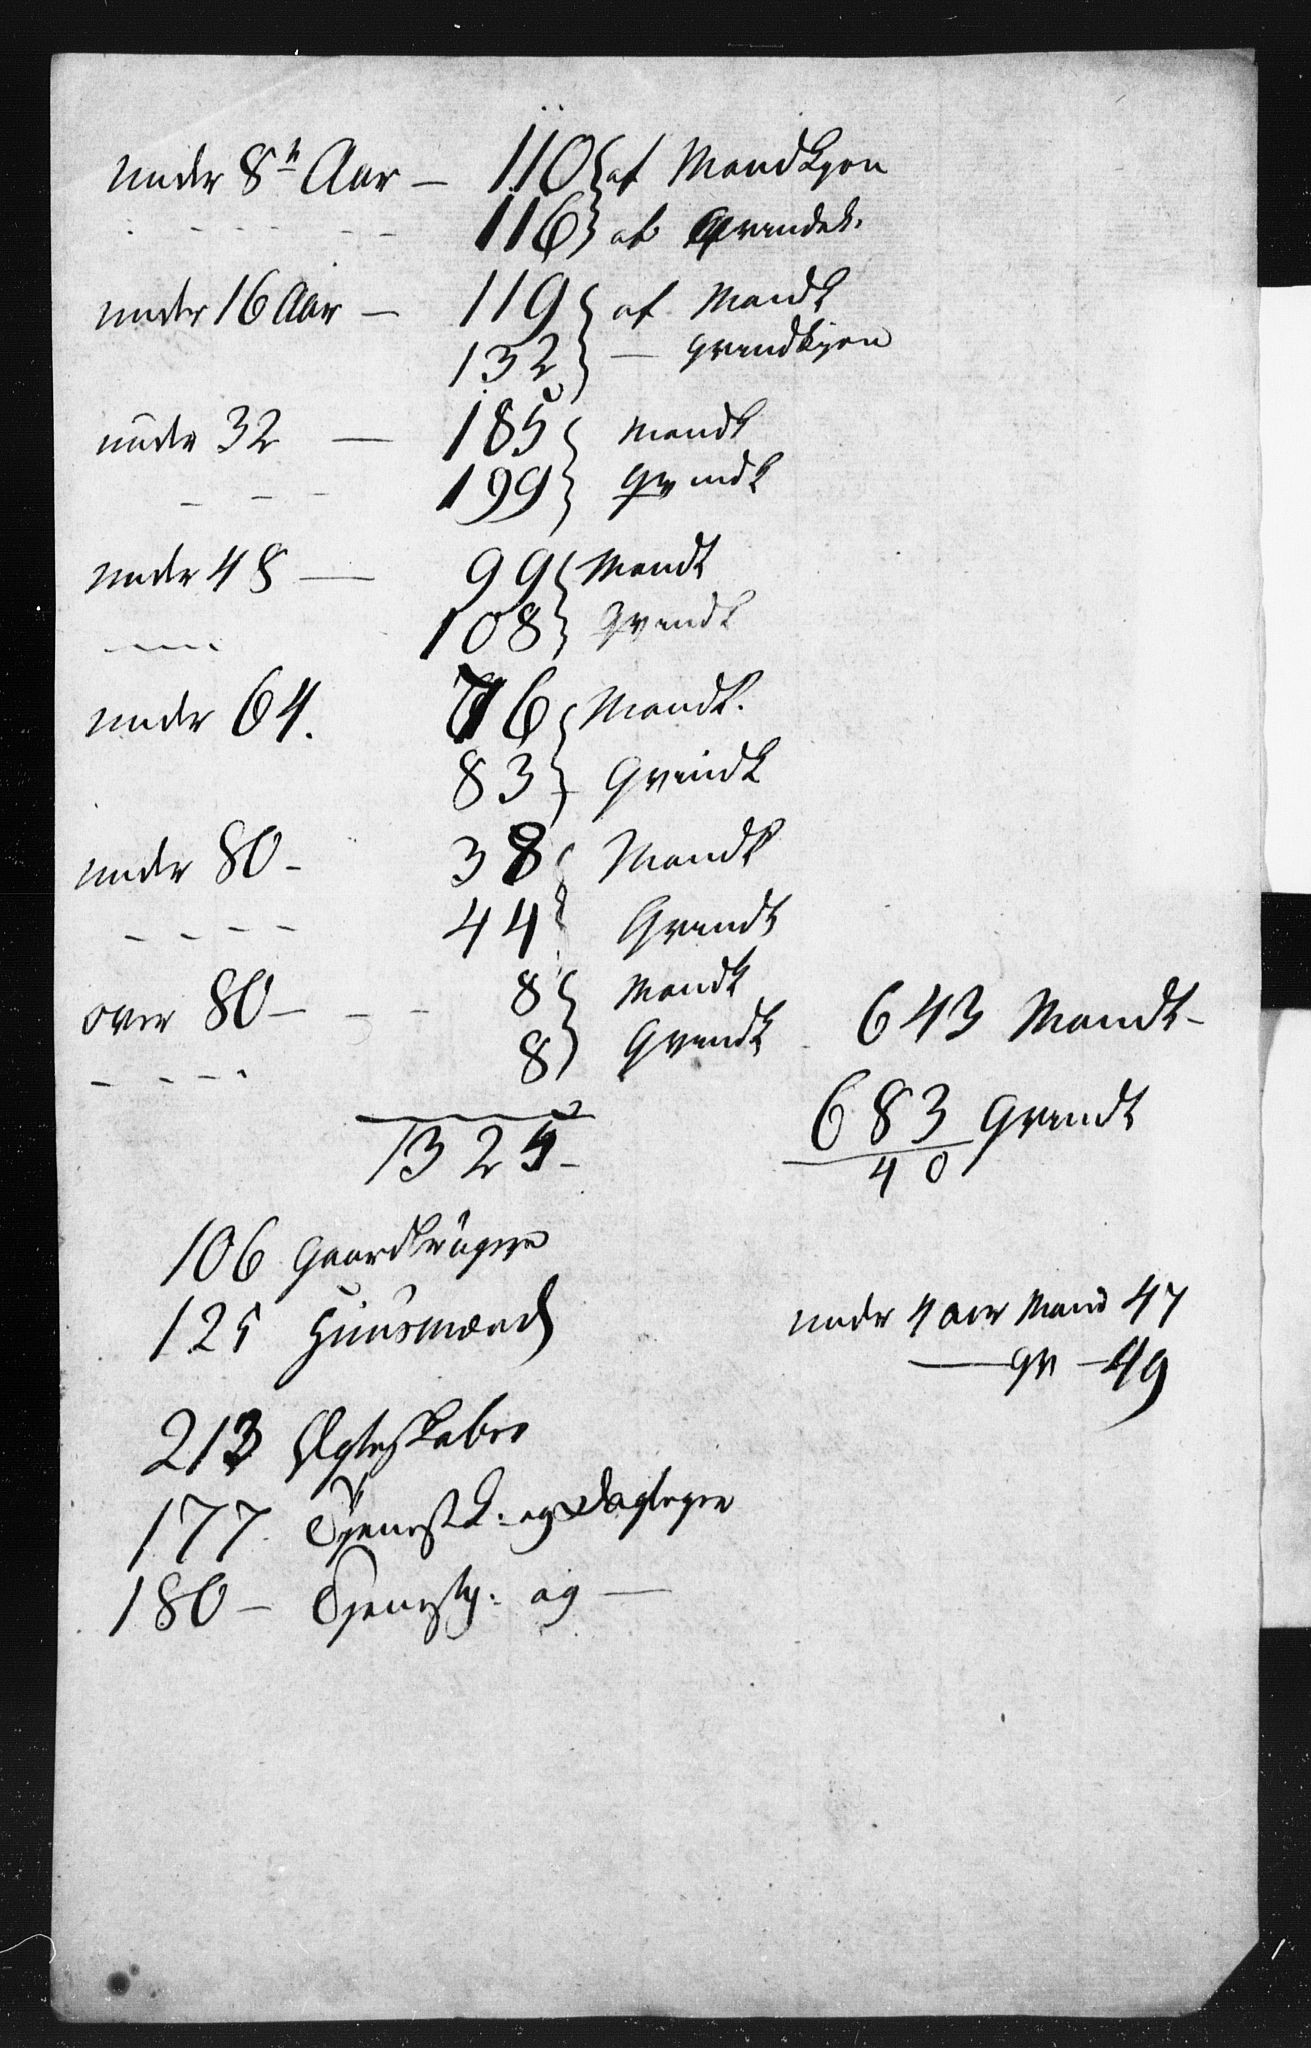 under 8te Aar — 110 } af Mandkjøn
- - - - - - 116 } af Qvindek.
under 16 Aar — 119 } af Mandk
132 } — Qvindkjøn
under 32 — 185 } Mandk
- - - 199 } Qvindk
under 48 — 99 } Mandk
- - - 108 } Qvindk
under 64. 76 } Mandk.
83 } Qvindk
under 80 - 38 } Mandk
- - - - 44 } Qvindk
over 80 - - - 8 } Mandk
- - - - 8 } Qvindk
643 Mandk -
683 Qvindk
40
1325 -
106 Gaardbrugere
125 Huusmænd
under 4 aar Mand 47
— qv — 49
213 Ægteskaber
177 Tjenestk: og Daglejere
180 - Tjenestp: og —